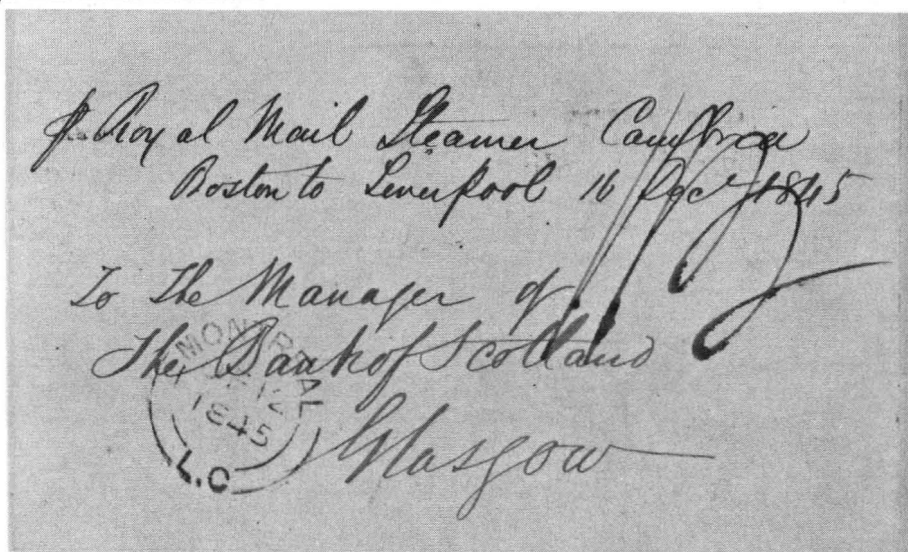 p. Royal Mail Steamer Cambria
Boston to Liverpool 16 Decr 1845
To The Manager of
The Bank of Scotland
Glasgow
MONTREAL
12
1845
L.C